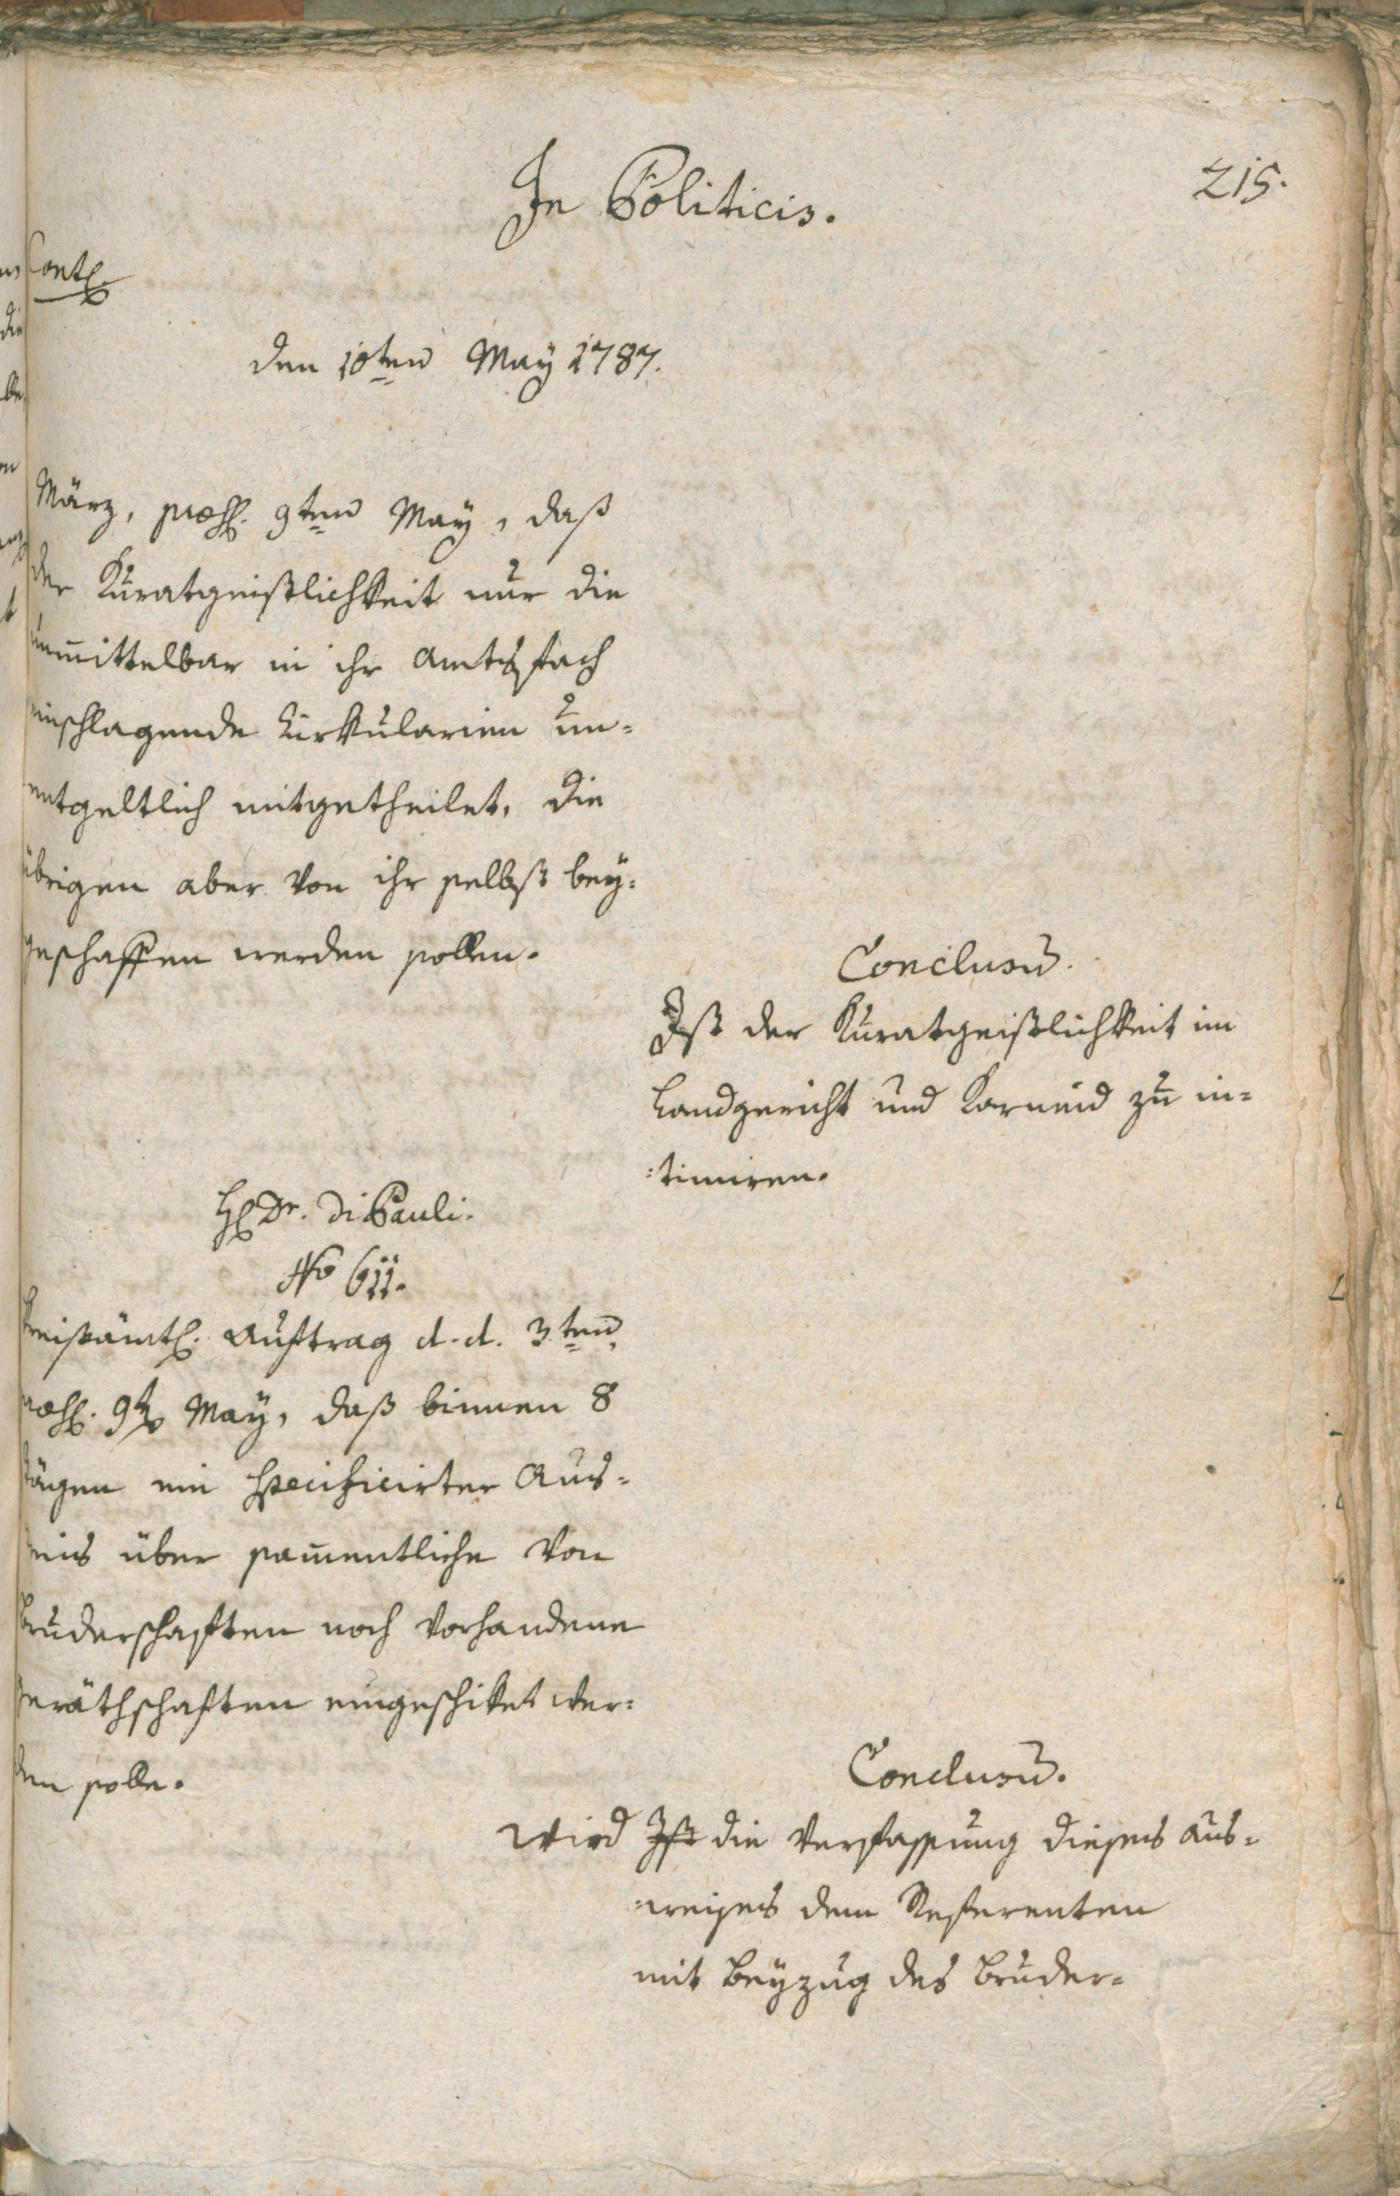 In Politicis.
215.
Contl.
den 10ten May 1787.
März, praes. 9ten May, daß
der Kuratgeistlichkeit nur die
unmittelbar in ihr Amtsfach
einschlagende Cirkularien un-
entgeltlich mitgetheilet, die
übrigen aber von ihr selbst bey-
geschaffen werden sollen.
Conclusum.
Ist der Kuratgeistlichkeit im
Landgericht und Karneid zu in-
timiren.
H. Dr. Di Pauli.
No 611.
Kreisämtl. Auftrag d. d. 3ten,
praes. 9ten May, daß binnen 8
Tägen ein specificirter Aus-
weis über sammentliche von
Bruderschaften noch vorhandene
Geräthschaften eingeschiket wer-
den solle.
Conclusum.
Wird Ist die Verfassung dieses Aus-
weises dem Referenten
mit Beyzug des Bruder-